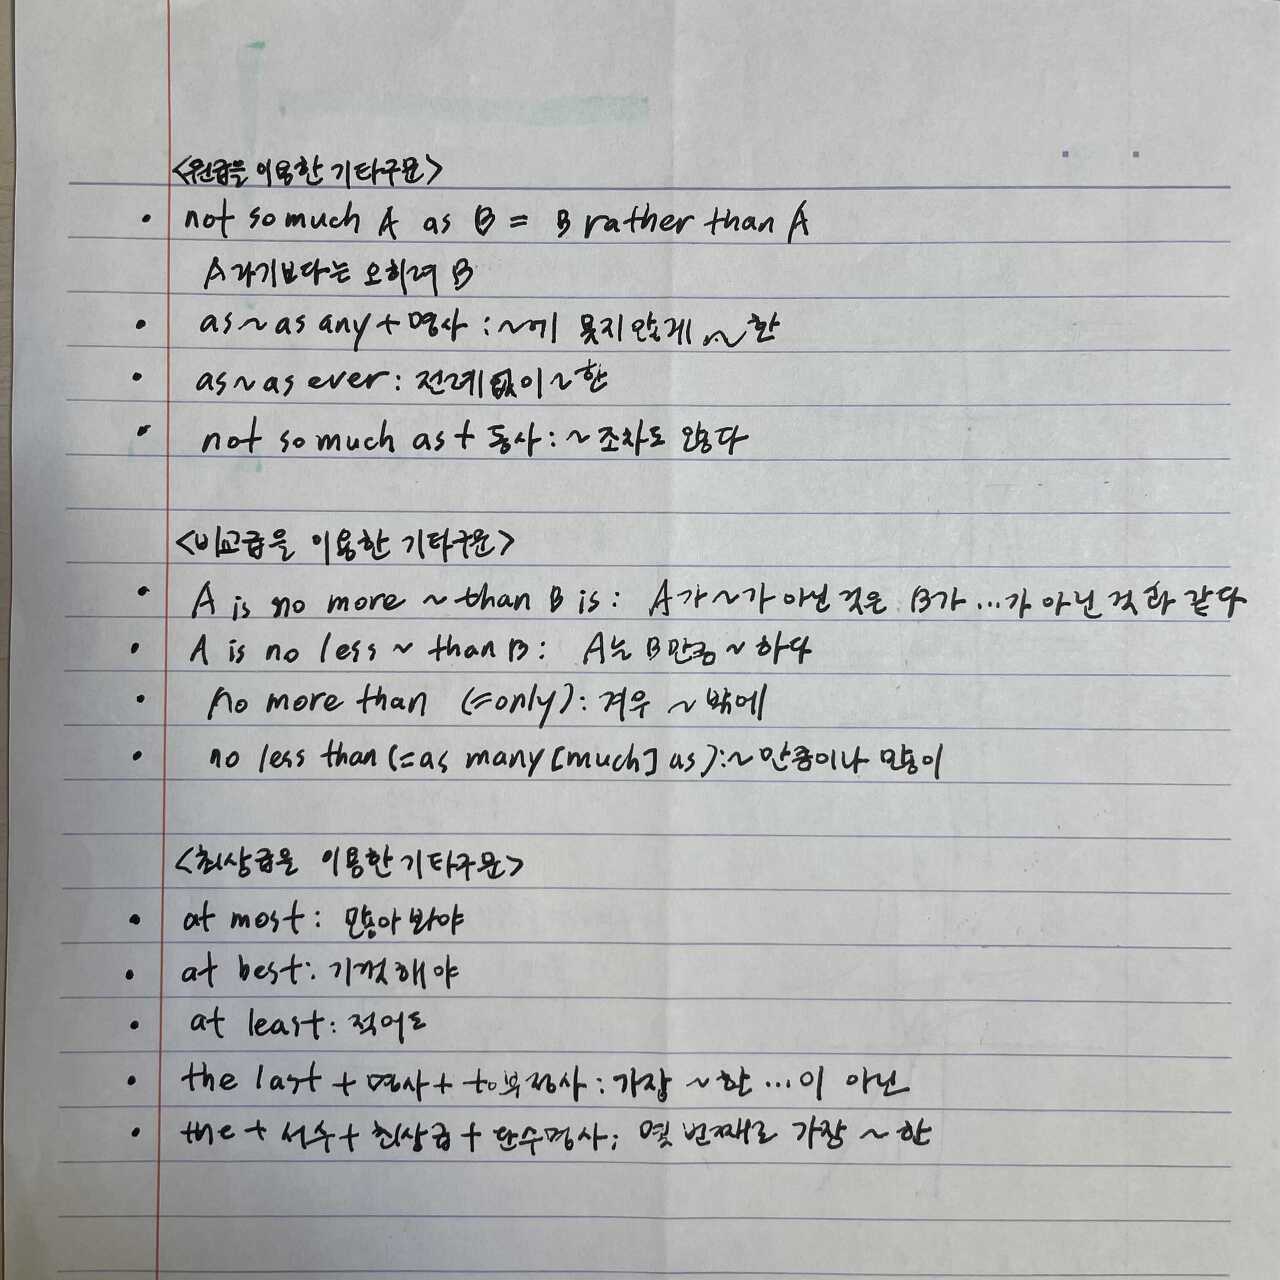 <원급을 이용한 기타구문>
• not so much A as B = B rather than A
A라기보다는 오히려 B
• as~as any + 명사 : ~에 못지않게 ~한
• as~as ever : 전례없이 ~한
• not so much as + 동사 : ~조차도 않다
<비교급을 이용한 기타구문>
• A is no more ~ than B is : A가 ~가 아닌 것은 B가 ...가 아닌 것과 같다
• A is no less ~ than B : A는 B만큼 ~하다
• no more than (=only) : 겨우 ~밖에
• no less than (=as many [much] as) : ~만큼이나 많이
<최상급을 이용한 기타구문>
• at most : 많아봐야
• at best : 기껏해야
• at least : 적어도
• the last + 명사 + to부정사 : 가장 ~한 ...이 아닌
• the + 서수 + 최상급 + 단수명사 ; 몇 번째로 가장 ~한